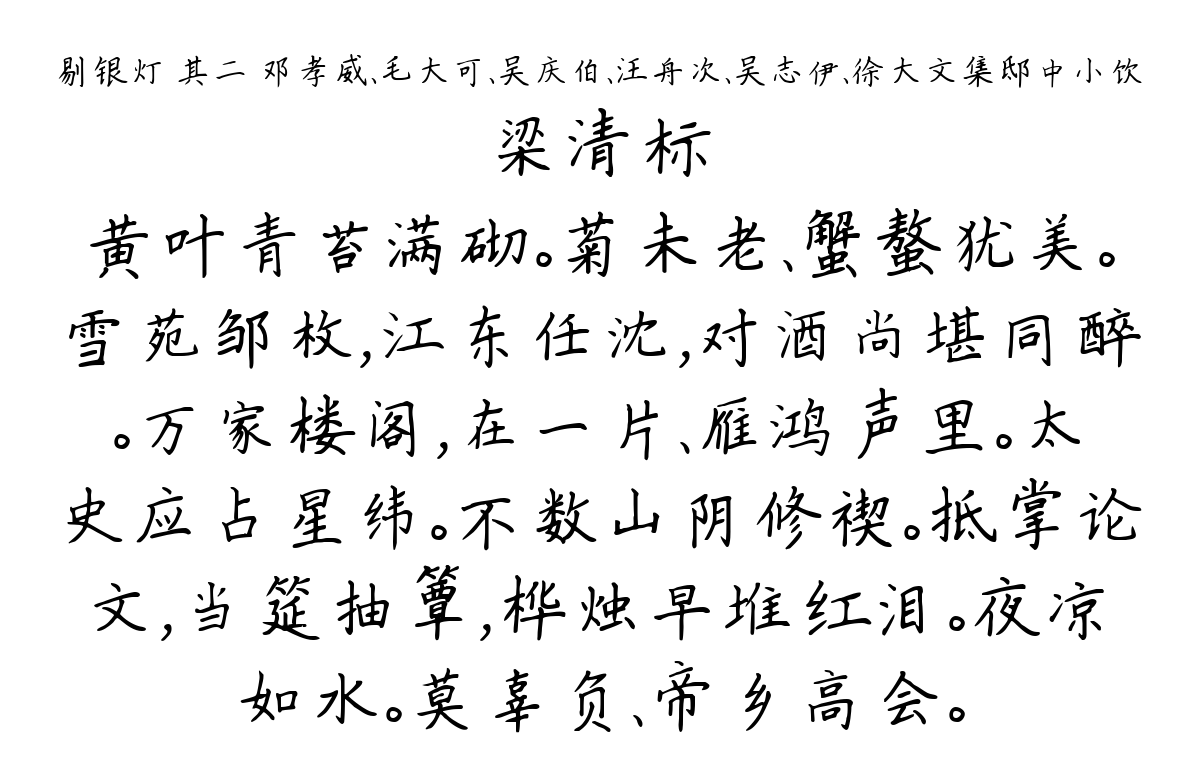 剔银灯 其二 邓孝威、毛大可、吴庆伯、汪舟次、吴志伊、徐大文集邸中小饮
梁清标
黄叶青苔满砌。菊未老、蟹螯犹美。
雪苑邹枚,江东任沈,对酒尚堪同醉
。万家楼阁,在一片、雁鸿声里。太
史应占星纬。不数山阴修禊。抵掌论
文,当筵抽簟,桦烛早堆红泪。夜凉
如水。莫辜负、帝乡高会。